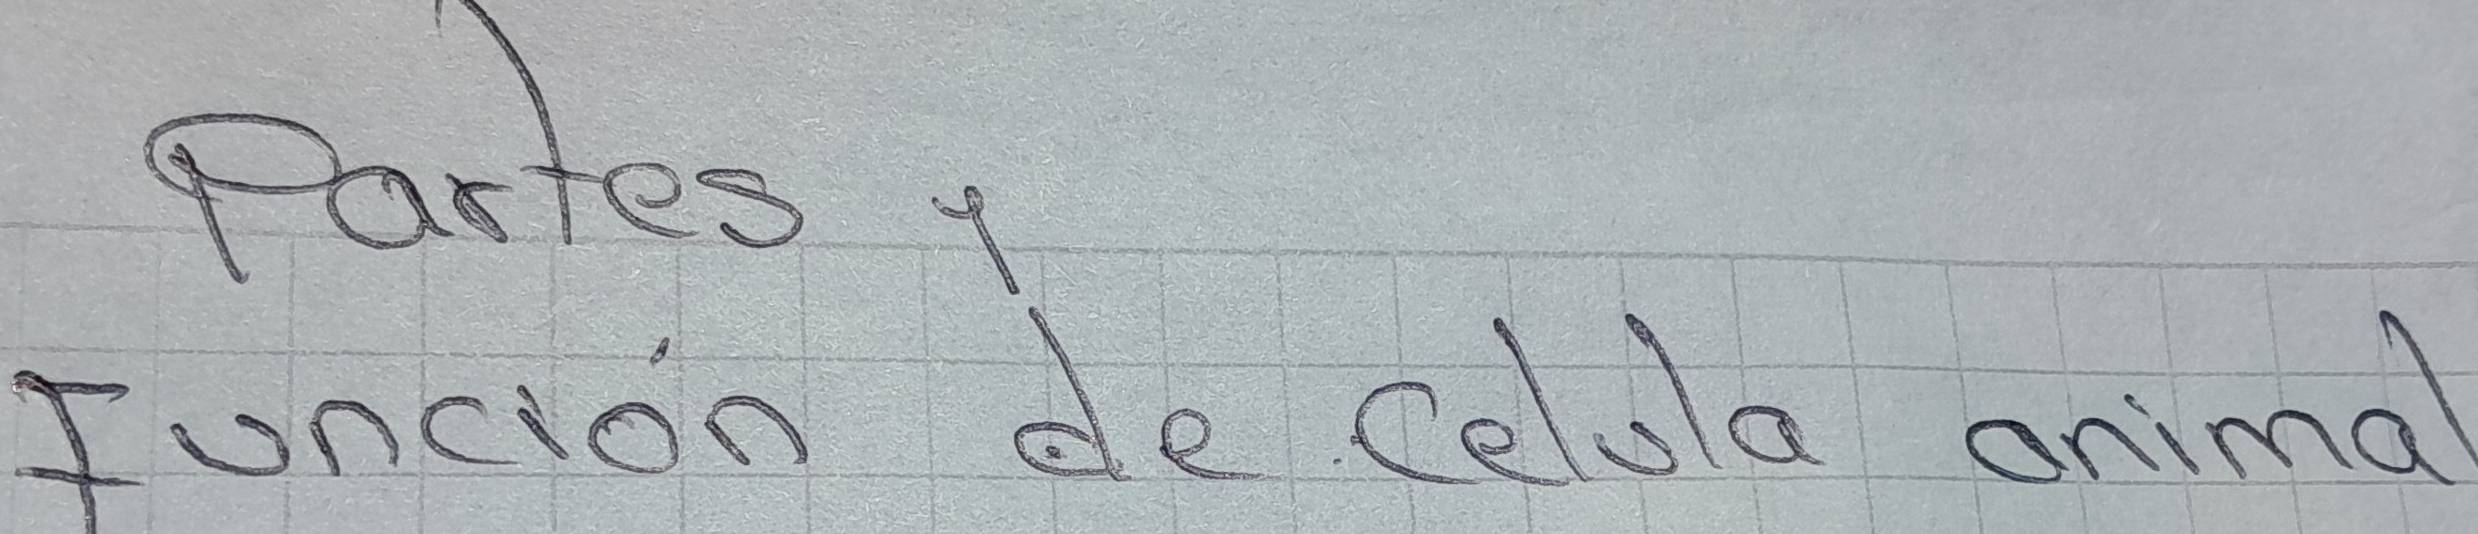 Partes y
función de celula animal